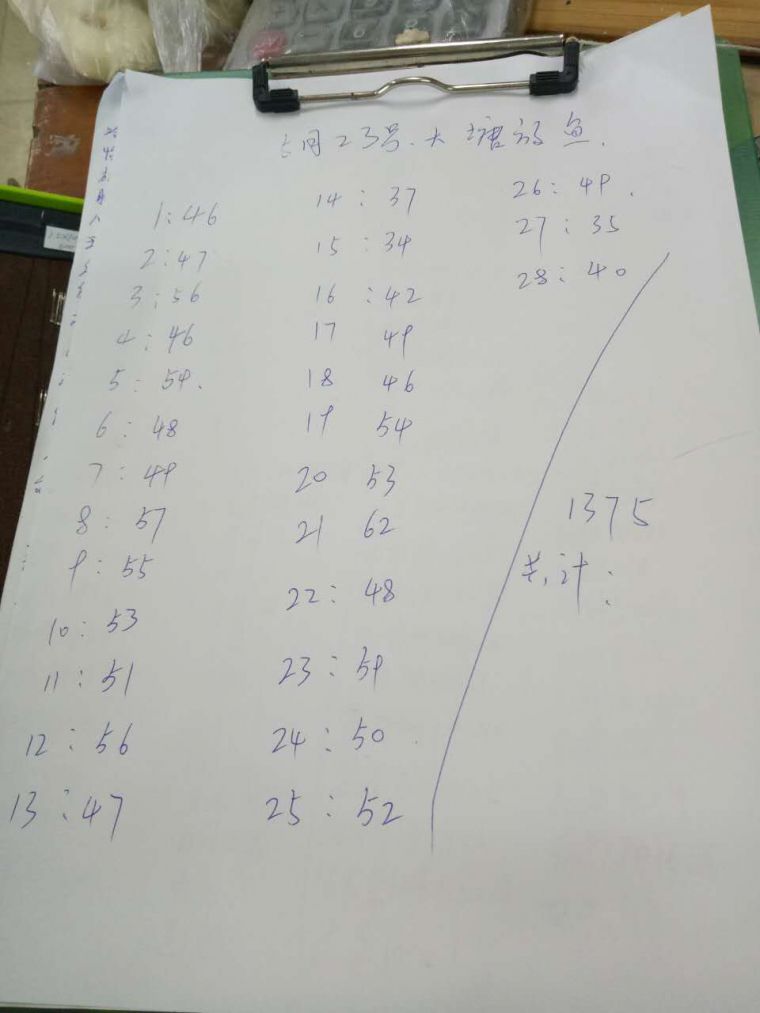 月23号.大塘放鱼.
1:46
2:47
3:56
4:46
5:54.
6:48
7:49
8:57
9:55
10:53
11:51
12:56
13:47
14:37
15:34
16:42
17 49
18 46
19 54
20 53
21 62
22:48
23:59
24:50
25:52
26:49.
27:35
28:40
1375
共计: